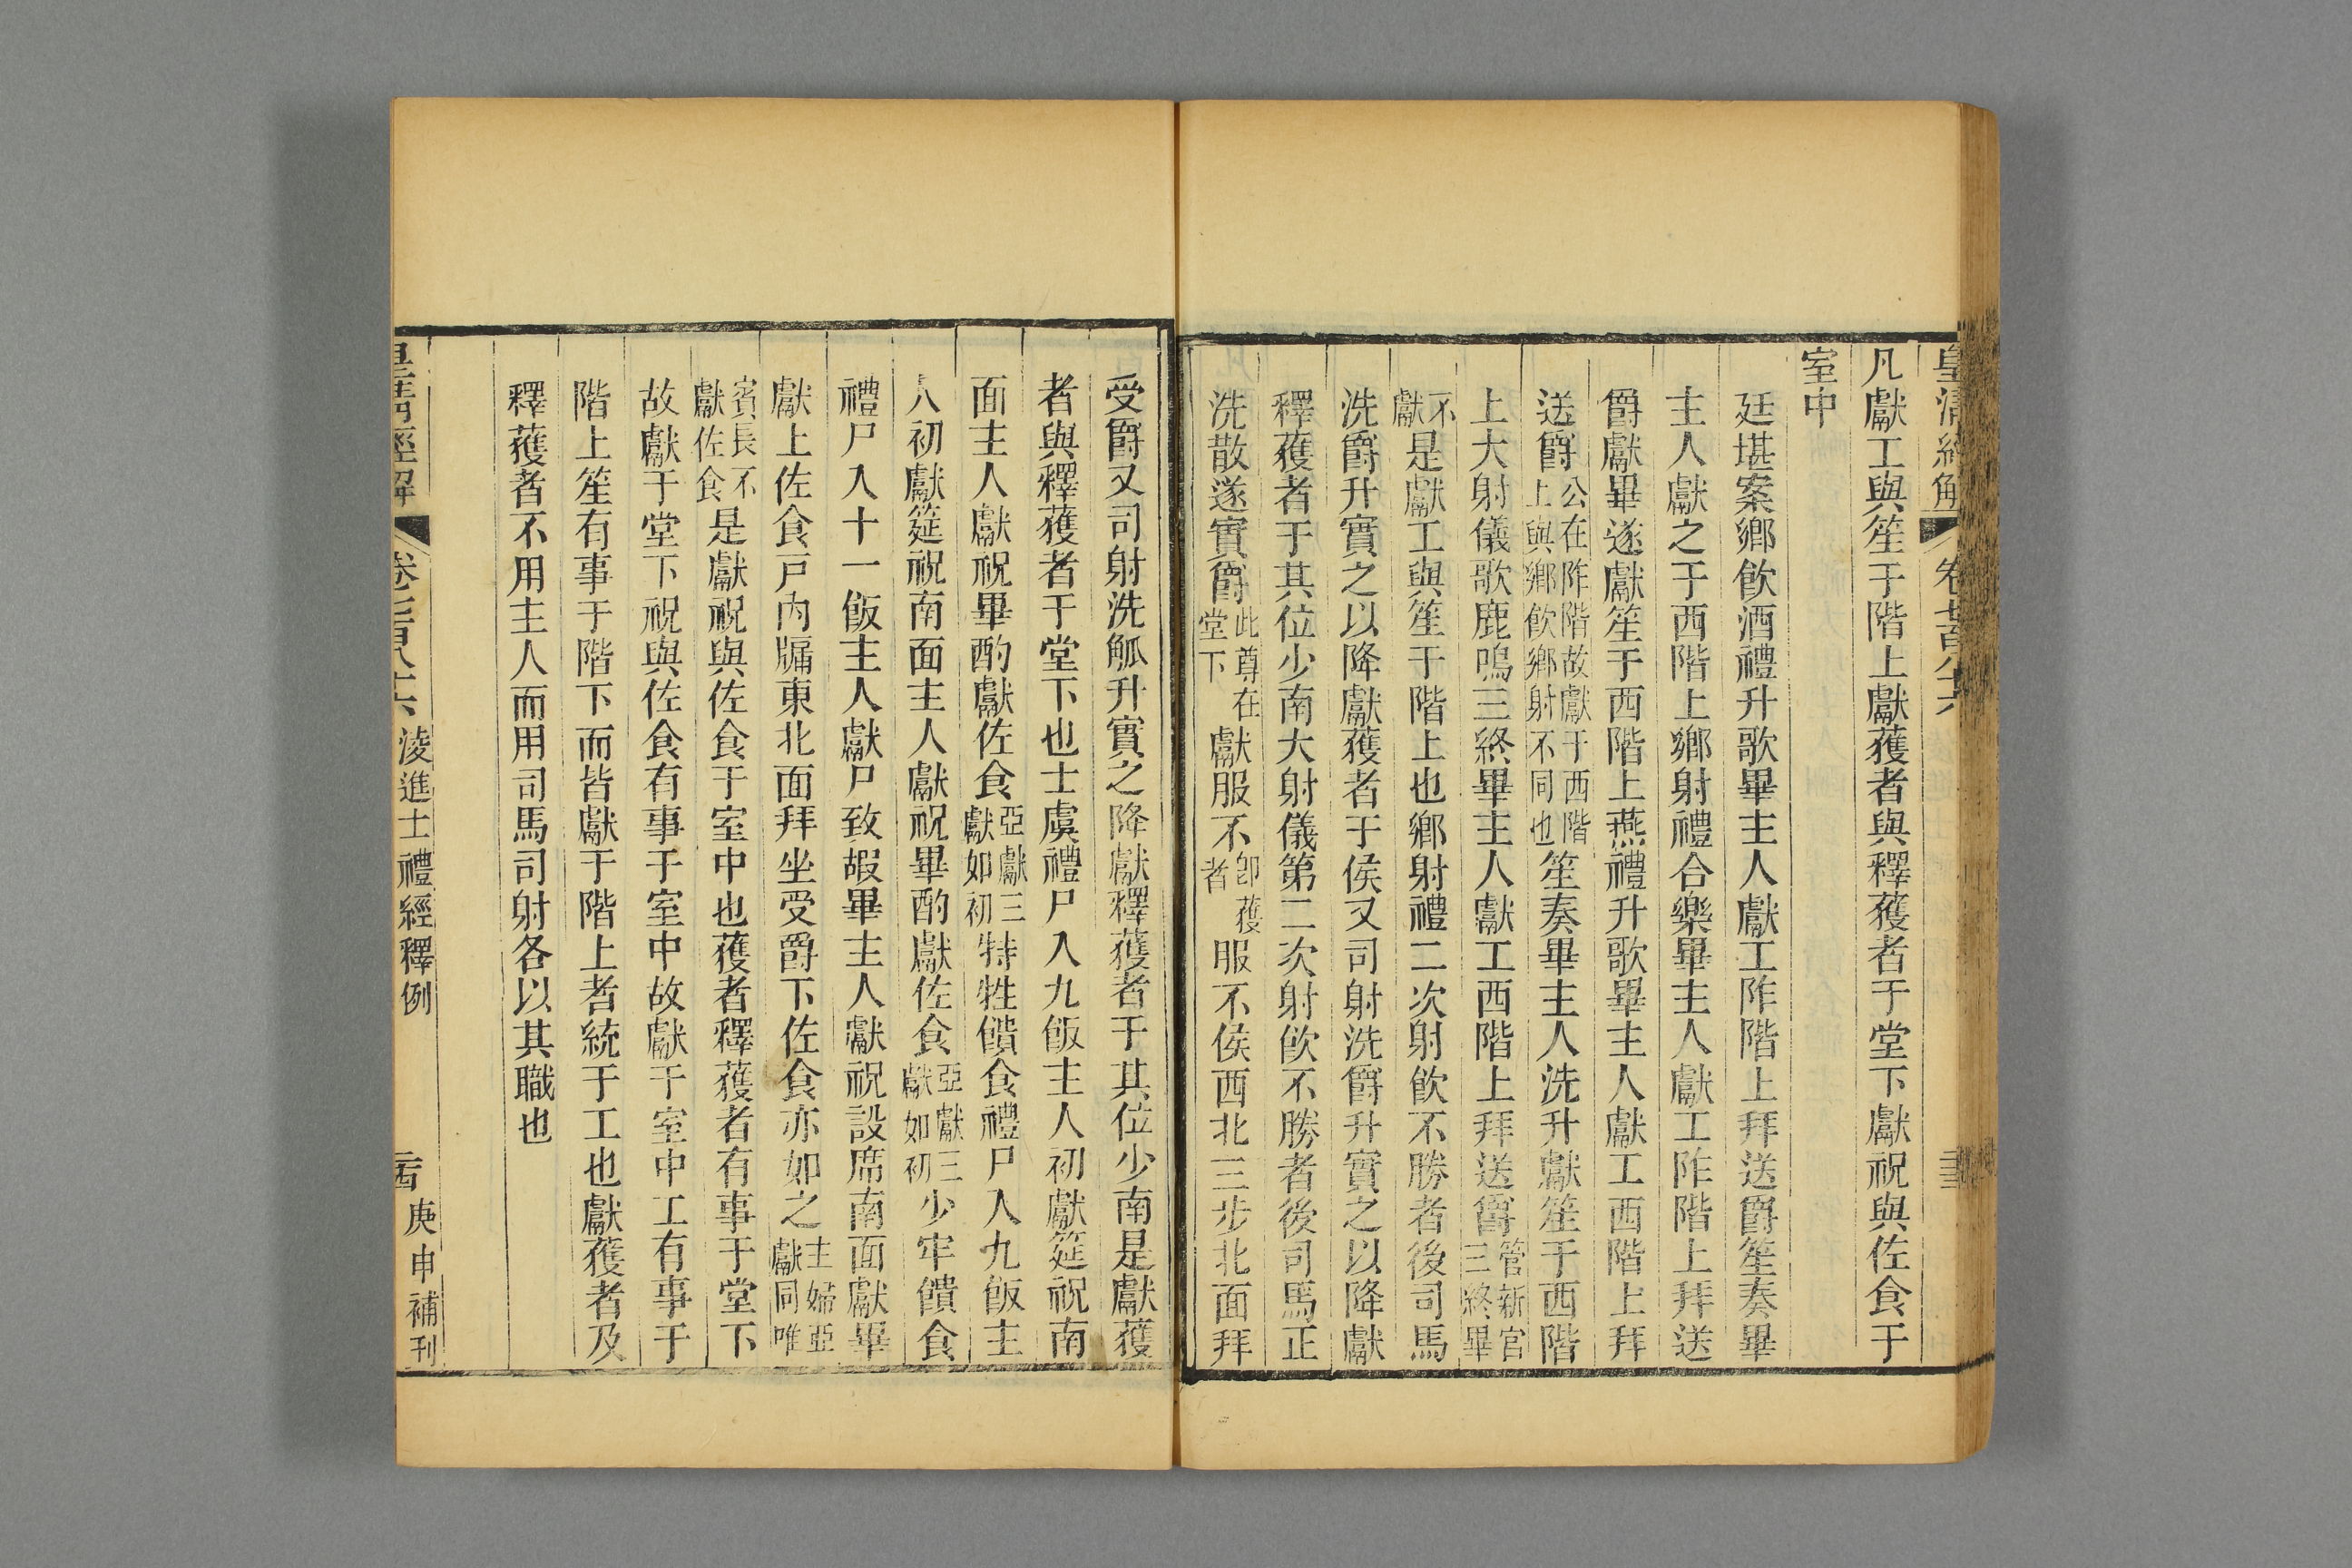 皇清經解 卷七百八十六
凡獻工與笙于階上獻獲者與釋獲者于堂下獻祝與佐食于
室中
廷堪案鄉飲酒禮升歌畢主人獻工阼階上拜送爵笙奏畢
主人獻之于西階上鄉射禮合樂畢主人獻工阼階上拜送
爵獻畢遂獻笙于西階上燕禮升歌畢主人獻工西階上拜
送爵公在阼階故獻于西階上與鄉飲鄉射不同也笙奏畢主人洗升獻笙于西階
上大射儀歌鹿鳴三終畢主人獻工西階上拜送爵管新官三終畢
不獻是獻工與笙于階上也鄉射禮二次射飲不勝者後司馬
洗爵升實之以降獻獲者于侯又司射洗爵升實之以降獻
釋獲者于其位少南大射儀第二次射飲不勝者後司馬正
洗散遂實爵此尊在堂下獻服不卽獲者服不侯西北三步北面拜
受爵又司射洗觚升實之降獻釋獲者于其位少南是獻獲
者與釋獲者于堂下也士虞禮尸入九飯主人初獻筵祝南
面主人獻祝畢酌獻佐食亞獻三獻如初特牲饋食禮尸入九飯主
人初獻筵祝南面主人獻祝畢酌獻佐食亞獻三獻如初少牢饋食
禮尸入十一飯主人獻尸致嘏畢主人獻祝設席南面獻畢
獻上佐食戸內牖東北面拜坐受爵下佐食亦如之主婦亞獻同唯
賓長不獻佐食是獻祝與佐食于室中也獲者釋獲者有事于堂下
故獻于堂下祝與佐食有事于室中故獻于室中工有事于
階上笙有事于階下而皆獻于階上者統于工也獻獲者及
釋獲者不用主人而用司馬司射各以其職也
皇清經解 卷七百八十六 淩進士禮經釋例 庚申補刊